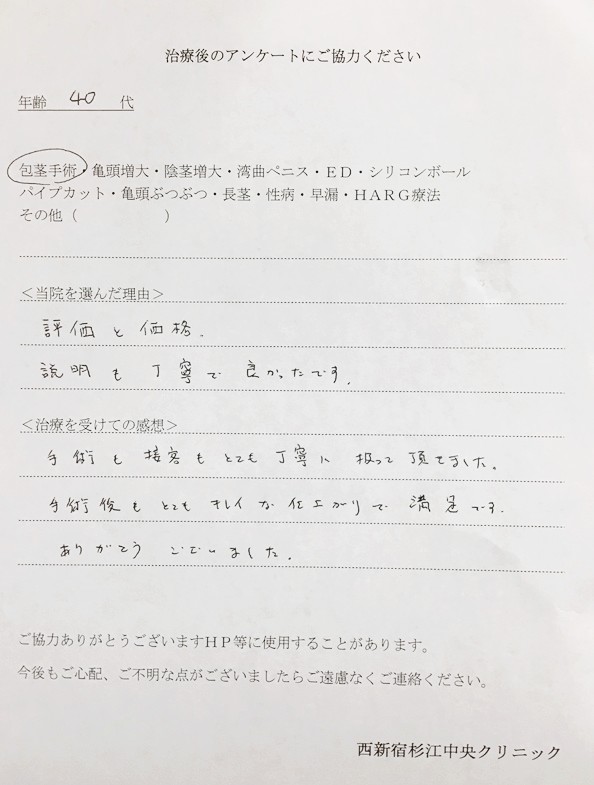 治療後のアンケートにご協力ください
年齢 40 代
包茎手術・亀頭増大・陰茎増大・湾曲ペニス・ED・シリコンボール
パイプカット・亀頭ぶつぶつ・長茎・性病・早漏・HARG療法
その他（　　　　　　　）
＜当院を選んだ理由＞
評価と価格.
説明も丁寧で良かったです.
＜治療を受けての感想＞
手術も接客もとても丁寧に扱って頂きました。
手術後もとてもキレイな仕上がりで満足です.
ありがとうございました。
ご協力ありがとうございますHP等に使用することがあります。
今後もご心配、ご不明な点がございましたらご遠慮なくご連絡ください。
西新宿杉江中央クリニック